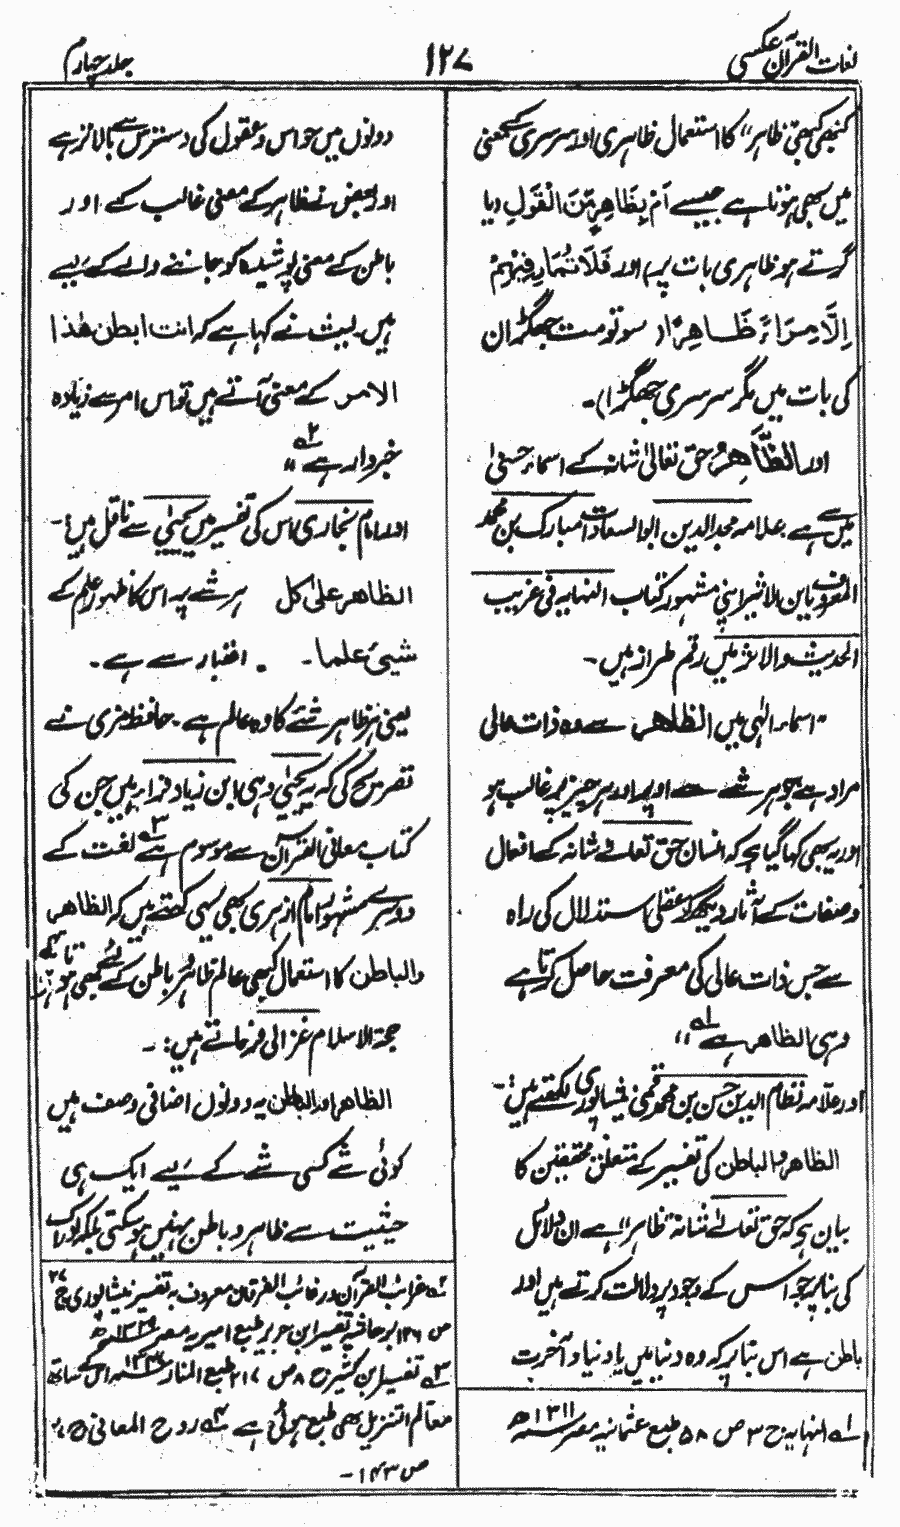 لغات القرآن عکسی
۱۲۷
جلد چہارم
کبھی کبھی "ظاہر" کا استعمال ظاہری اور سرسری کے معنی
میں بھی ہوتا ہے جیسے اَمْ بِظَاهِرٍ مِّنَ الْقَوْلِ (یا
کرتے ہو ظاہری بات پر) اور فَلَا تُمَارِ فِيْهِمْ
اِلَّا مِرَاءً ظَاهِرًا (سو تو مت جھگڑ ان
کی بات میں مگر سرسری جھگڑا)۔
اور الظَّاهِرُ حق تعالیٰ شانہ کے اسماء حسنیٰ
میں سے ہے۔ علامہ مجد الدین ابو السعادات مبارک بن محمد
المعروف بابن الاثیر اپنی مشہور کتاب النہایہ فی غریب
الحدیث والاثر میں رقم طراز ہیں۔
"اسماء الٰہی میں الظاهر سے وہ ذات عالی
مراد ہے جو ہر شے سے اوپر اور ہر چیز پر غالب ہو
اور یہ بھی کہا گیا ہے کہ انسان حق تعالےٰ شانہ کے افعال
وصفات کے آثار دیکھ کر عقلی استدلال کی راہ
سے جس ذات عالی کی معرفت حاصل کرتا ہے
وہی الظاهر ہے" ؎۱
اور علامہ نظام الدین حسن بن محمد قمی نیشاپوری لکھتے ہیں:۔
الظاهر والباطن کی تفسیر کے متعلق محققین کا
بیان ہے کہ حق تعالےٰ شانہ "ظاہر" ہے ان دلائل
کی بنا پر جو اس کے وجود پر دلالت کرتے ہیں اور
باطن ہے اس بنا پر کہ وہ دنیا میں یا دنیا و آخرت
؎۱ النہایہ ج ۳ ص ۵۸ طبع عثمانیہ مصر سنہ ۱۳۱۱ھ
دونوں میں حواس و عقول کی دسترس سے بالاتر ہے
اور بعض نے ظاہر کے معنی غالب کے اور
باطن کے معنی پوشیدہ کو جاننے والے کے لیے
ہیں۔ لیث نے کہا ہے کہ انت ابطن ھٰذا
الامر۔ کے معنی آتے ہیں تو اس امر سے زیادہ
خبردار ہے" ؎۲
اور امام بخاری اس کی تفسیر میں یحییٰ سے ناقل ہیں:۔
الظاهر علیٰ کل ہر شے پر اس کا ظہور علم کے
شیئ علما۔ اعتبار سے ہے۔
یعنی ہر ظاہر شے کا وہ عالم ہے۔ حافظ مزی نے
تصریح کی کہ یہ یحییٰ وہی ابن زیاد فراء ہیں جن کی
کتاب معانی القرآن سے موسوم ہے ؎۳ لغت کے
دوسرے مشہور امام ازہری بھی یہی کہتے ہیں کہ الظاهر
والباطن کا استعمال کبھی عالم ظاہر و باطن کے لئے بھی ہوتا ہے
حجۃ الاسلام غزالی فرماتے ہیں:۔
الظاهر اور الباطن یہ دونوں اضافی وصف ہیں
کوئی شے کسی شے کے لیے ایک ہی
حیثیت سے ظاہر و باطن نہیں ہو سکتی بلکہ ادراک
؎۲ غرائب القرآن ورغائب الفرقان معروف بہ تفسیر نیشاپوری ج ۲۷
ص ۱۲۶ برحاشیہ تفسیر ابن جریر طبع امیریہ مصر سنہ ۱۳۲۹ھ
؎۳ تفسیر ابن کثیر ج ۸ ص ۲۱۷ طبع المنار سنہ ۱۳۴۷ اس کے ساتھ
معالم التنزیل بھی طبع ہوئی ہے ؎۴ روح المعانی ج
ص ۱۴۳۔